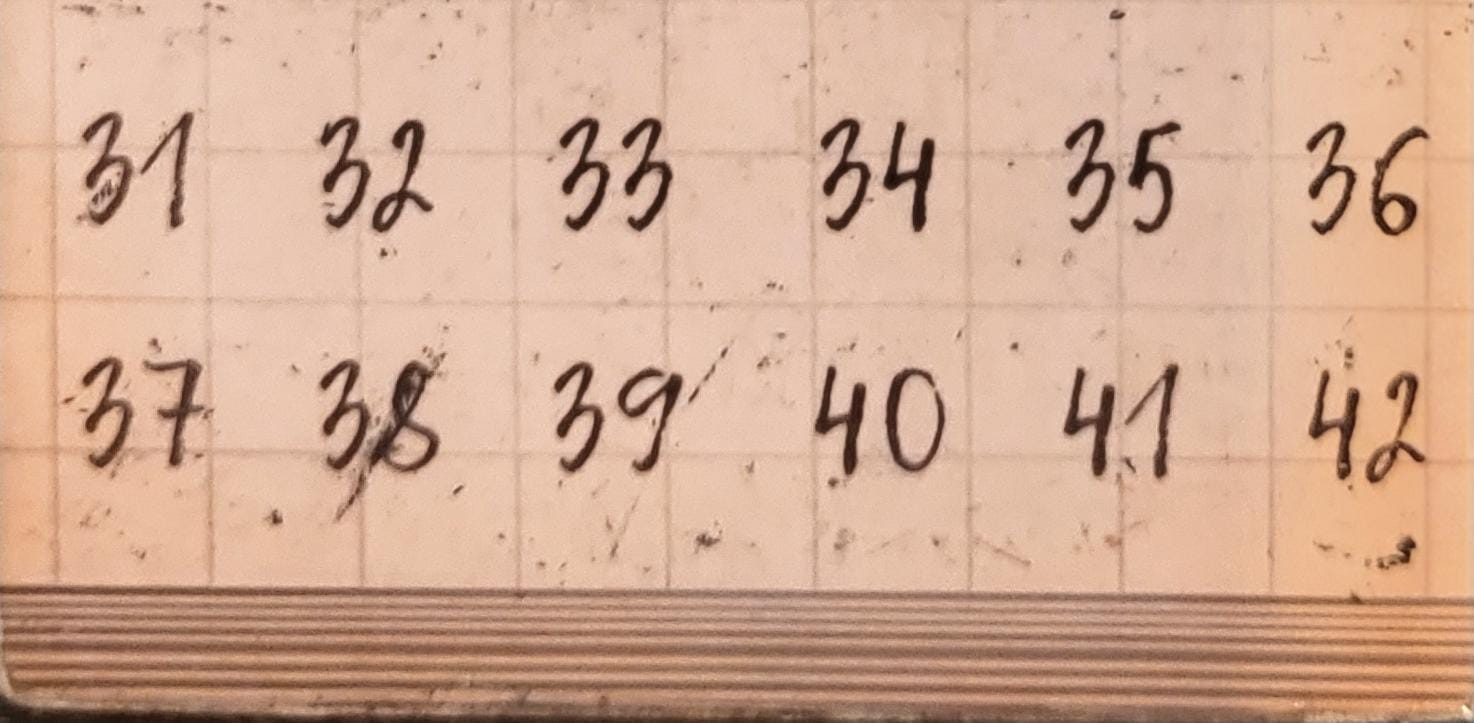 31 32 33 34 35 36
37 38 39 40 41 42